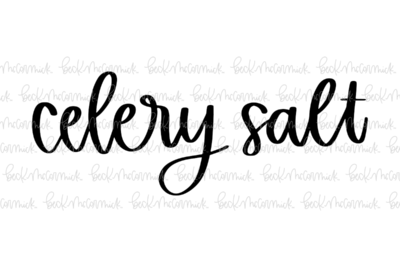 celery salt